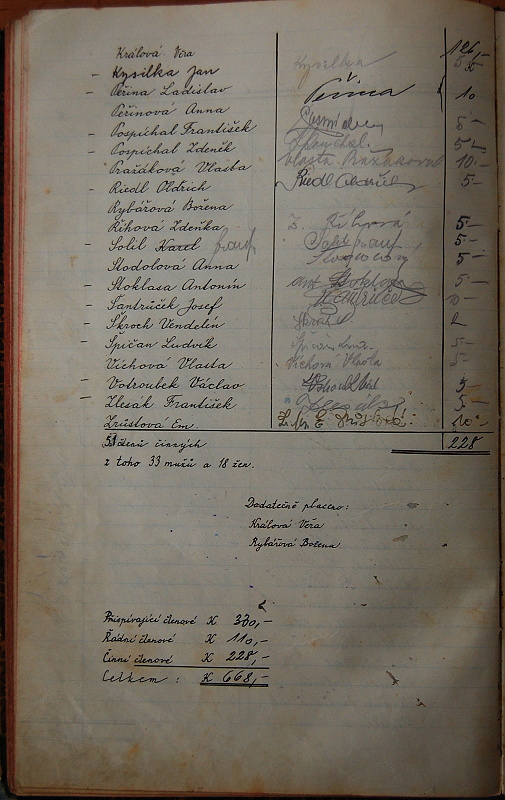 Králová Věra 126,-
– Kysilka Jan Kysilka 5
– Peřina Ladislav Peřina 10
Peřinová Anna
– Pospíchal František 5-
– Pospíchal Zdeněk 5-
Pražáková Vlasta Vlasta Pražáková 10.-
– Riedl Oldřich Riedl Oldřich 5-
Rybářová Božena
Říhová Zdeňka Z. Říhová 5-
– Solil Karel 5-
Stodolová Anna 5-
– Stoklasa Antonín Ant. Stoklasa 5-
– Šantrůček Josef Šantrůček 10-
– Škroch Vendelín 2
– Špičan Ludvík 5-
Víchová Vlasta Víchová Vlasta 5-
– Votroubek Václav 5
– Zlesák František 5-
Zrůstová Em. 10-
51 členů činných 228
z toho 33 mužů a 18 žen.
Dodatečně placeno:
Králová Věra
Rybářová Božena
Přispívající členové K 330,-
Řádní členové K 110,-
Činní členové K 228,-
Celkem : K 668,-